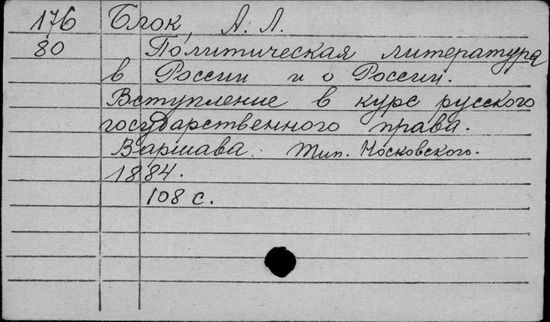 176 Блок, А. Л.
80 Политическая литература
в России и о России.
Вступление в курс русского
государственного права.
Варшава. Тип. Носковского.
1884.
108 с.